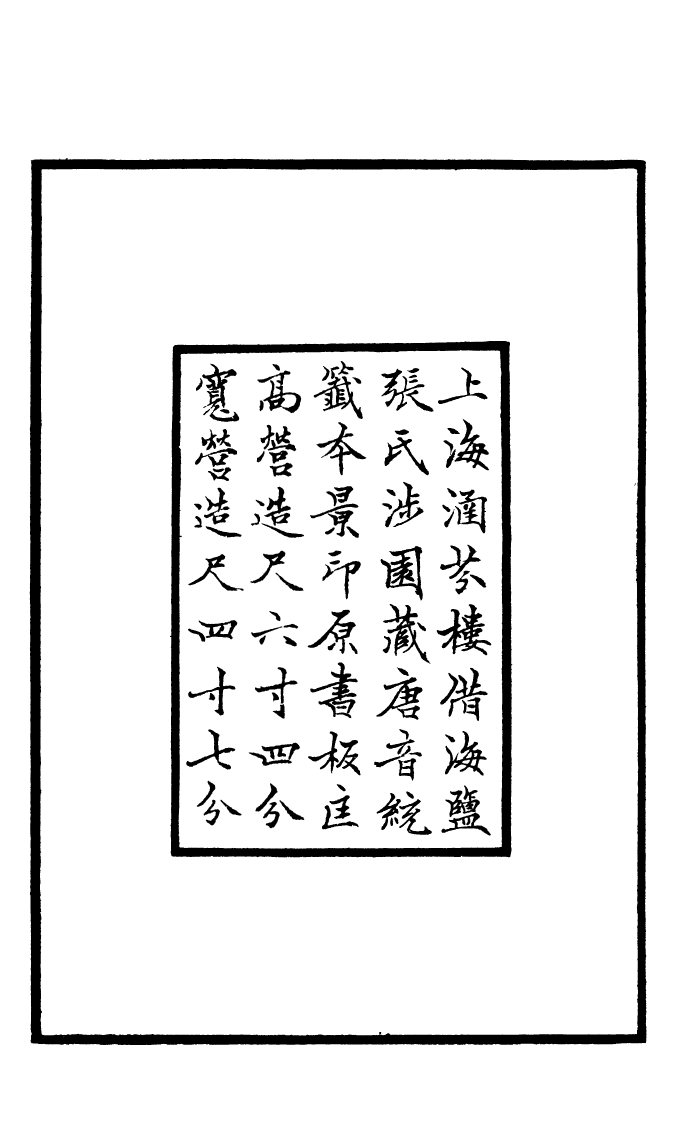 上海涵芬樓借海鹽
張氏涉園藏唐音統
籤本景印原書板匡
高營造尺六寸四分
寬營造尺四寸七分